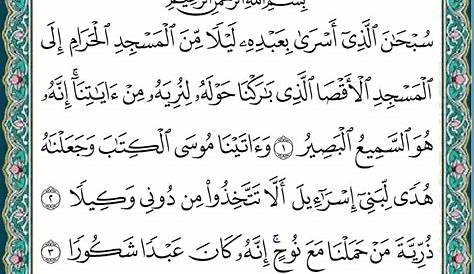 بِسْمِ اللَّهِ الرَّحْمَنِ الرَّحِيمِ
سُبْحَانَ الَّذِي أَسْرَى بِعَبْدِهِ لَيْلًا مِنَ الْمَسْجِدِ الْحَرَامِ إِلَى
الْمَسْجِدِ الْأَقْصَا الَّذِي بَارَكْنَا حَوْلَهُ لِنُرِيَهُ مِنْ ءَايَاتِنَا إِنَّهُ
هُوَ السَّمِيعُ الْبَصِيرُ ١ وَءَاتَيْنَا مُوسَى الْكِتَابَ وَجَعَلْنَاهُ
هُدًى لِبَنِي إِسْرَاءِيلَ أَلَّا تَتَّخِذُوا مِنْ دُونِي وَكِيلًا ٢
ذُرِّيَّةَ مَنْ حَمَلْنَا مَعَ نُوحٍ إِنَّهُ كَانَ عَبْدًا شَكُورًا ٣